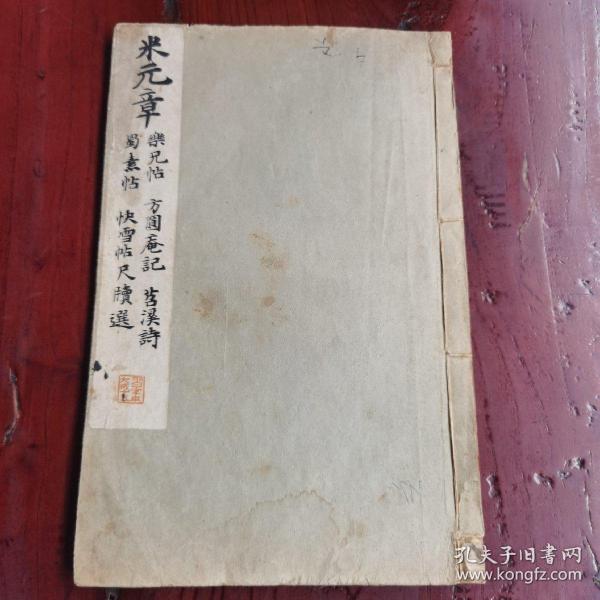 米元章
樂兄帖 方圓庵記 苕溪詩
蜀素帖 快雪帖尺牘選
孔夫子旧書网
www.kongfz.com